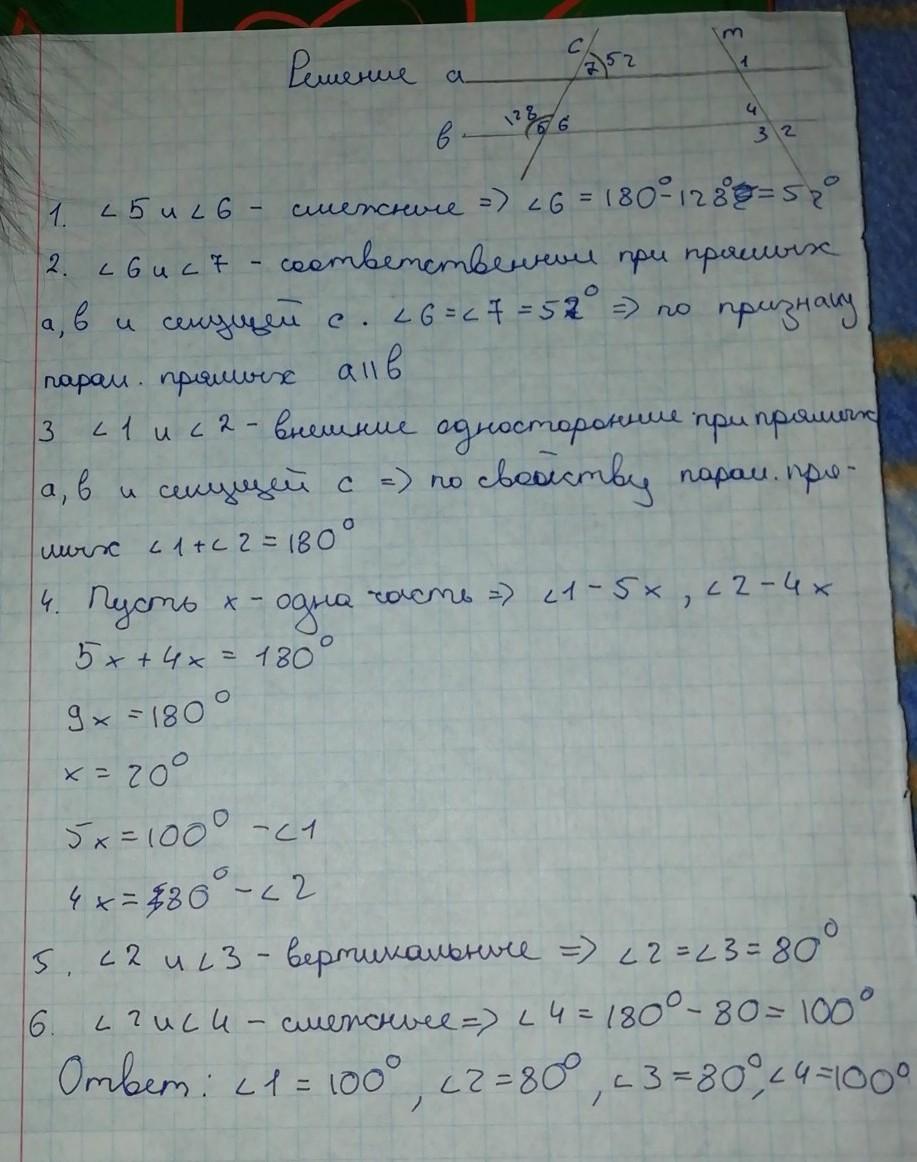 Решение a c 7 52 m 1
в 128 5 6 4 3 2
1. ∠5 и ∠6 - смежные => ∠6 = 180° - 128° = 52°
2. ∠6 и ∠7 - соответственные при прямых
а, в и секущей с. ∠6 = ∠7 = 52° => по признаку
парал. прямых a||в
3 ∠1 и ∠2 - внешние односторонние при прямых
а, в и секущей с => по свойству парал. пря-
мых ∠1 + ∠2 = 180°
4. Пусть х - одна часть => ∠1 - 5х, ∠2 - 4х
5х + 4х = 180°
9х = 180°
х = 20°
5х = 100° - ∠1
4х = 80° - ∠2
5. ∠2 и ∠3 - вертикальные => ∠2 = ∠3 = 80°
6. ∠2 и ∠4 - смежные => ∠4 = 180° - 80 = 100°
Ответ: ∠1 = 100°, ∠2 = 80°, ∠3 = 80°, ∠4 = 100°